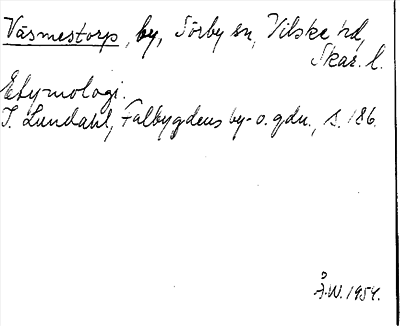 Väsmestorp, by, Sörby sn, Vilske hd,
Skar. l.
Etymologi.
I. Lundahl, Falbygdens by- o. gdn., s. 186.
Å.W. 1954.